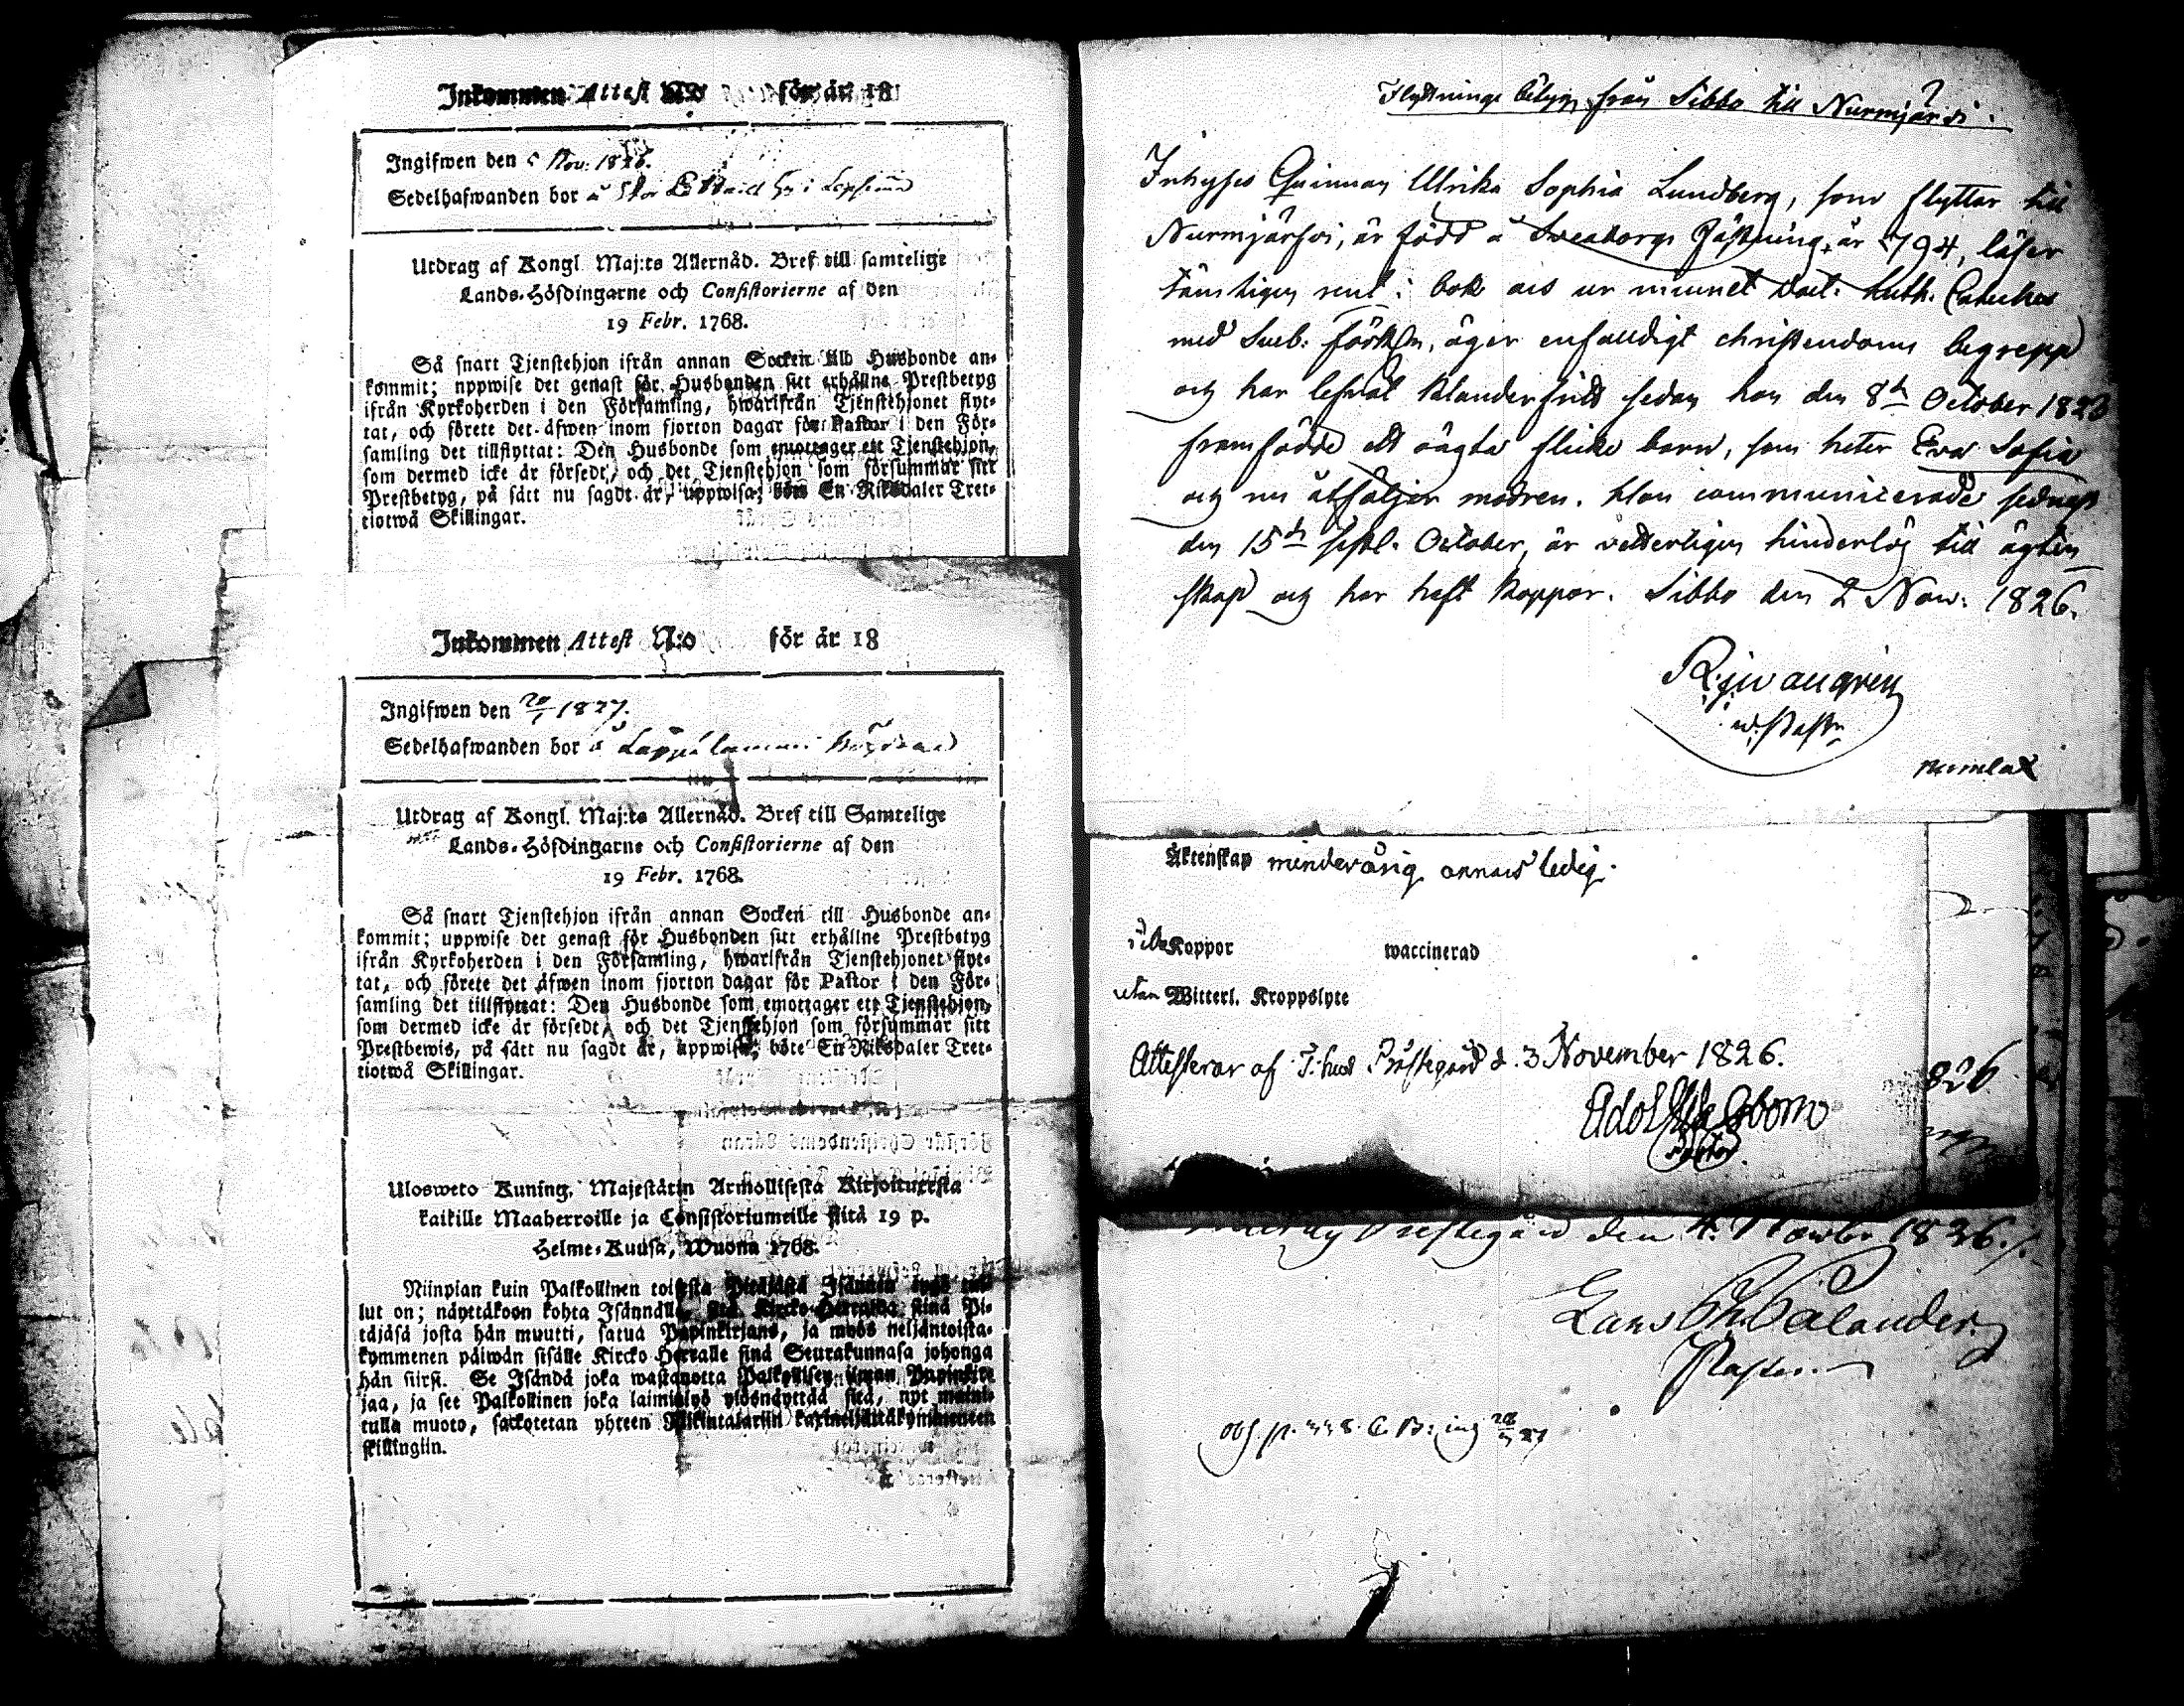 Inkommen Attest N:o för år 18
Ingifwen den 5 Nov. 1826.
Sedelhafwanden bor å
Utdrag af Kongl Maj:ts Allernåd. Bref till samtelige
Lands-Höfdingarne och Consistorierne af den
19 Febr. 1768.
Så snart Tjenstehjon ifrån annan Socken till Husbonde an-
kommit; uppwise det genast för Husbonden sitt erhållne Prestbetyg
ifrån Kyrkoherden i den Församling, hwarifrån Tjenstehjonet flyt-
tat, och förete det äfwen inom fjorton dagar för Pastor i den För-
samling det tillflyttat: Den Husbonde som emottager ett Tjenstehjon,
som dermed icke är försedt, och det Tjenstehjon som försummar sitt
Prestbetyg, på sätt nu sagdt är, uppwisa; böte En Riksdaler Tret-
tiotwå Skillingar.
Inkommen Attest N:o för år 18
Ingifwen den 20/1 1827.
Sedelhafwanden bor å
Utdrag af Kongl. Maj:ts Allernåd. Bref till Samtelige
Lands-Höfdingarne och Consistorierne af den
19 Febr. 1768.
Så snart Tjenstehjon ifrån annan Socken till Husbonde an-
kommit; uppwise det genast för Husbonden sitt erhållne Prestbetyg
ifrån Kyrkoherden i den Församling, hwarifrån Tjenstehjonet flyt-
tat, och förete det äfwen inom fjorton dagar för Pastor i den För-
samling det tillflyttat: Den Husbonde som emottager ett Tjenstehjon,
som dermed icke är försedt, och det Tjenstehjon som försummar sitt
Prestbewis, på sätt nu sagdt är, uppwisa; böte En Riksdaler Tret-
tiotwå Skillingar.
Ulosweto Kuning. Majestätin Armollisesta Kirjoituxesta
kaikille Maaherroille ja Consistoriumeille siitä 19 p.
Helme-Kuusa, Wuona 1768.
Niinpian kuin Palkollinen toisesta Pitäjästä Isännän tygö tul-
lut on; näyttäkoon kohta Isännälle, sitä Kircko-Herralda siinä Pi-
täjäsä josta hän muutti, satua Papinkirjans, ja myös neljäntoista-
kymmenen päiwän sisälle Kircko Herralle siinä Seurakunnasa johonga
hän siirsi. Se Isändä joka wastanotta Palkollisen ilman Papinkir-
jaa, ja see Palkollinen joka laiminlyö ylösnäyttää sitä, nyt maini-
tulla muoto, sackotetan yhteen Rikintalariin kaxineljättäkymmeneen
skillingiin.
Flyttnings betyg från Sibbo till Nurmjärvi.
Inhyses Qvinnan Ulrika Sophia Lundberg, som flyttar till
Nurmjärfvi, är född å Sveaborgs Fästning år 1794, läser
tämligen rent i bok och ur minnet Doct. Luth. Cateches
med Sueb. förkln, äger enfaldigt christendoms begrepp
och har lefvat klanderfritt sedan hon den 8de October 1823
framfödde ett oägta flicke barn, som heter Eva Sofia
och nu åtföljer modren. Hon communicerade sednast
den 15de sistl. October, är vetterligen hinderlös till ägten
skap och har haft koppor. Sibbo den 2 Nov: 1826.
Äktenskap minderårig annars ledig.
Koppor waccinerad
utan Witterl. Kroppslyte
Attesterar af Prästegård d. 3 November 1826.
Adolf
Pastor.
826
Prestegård den 4. Novbr 1826./.
Lars Palander
Pastor.